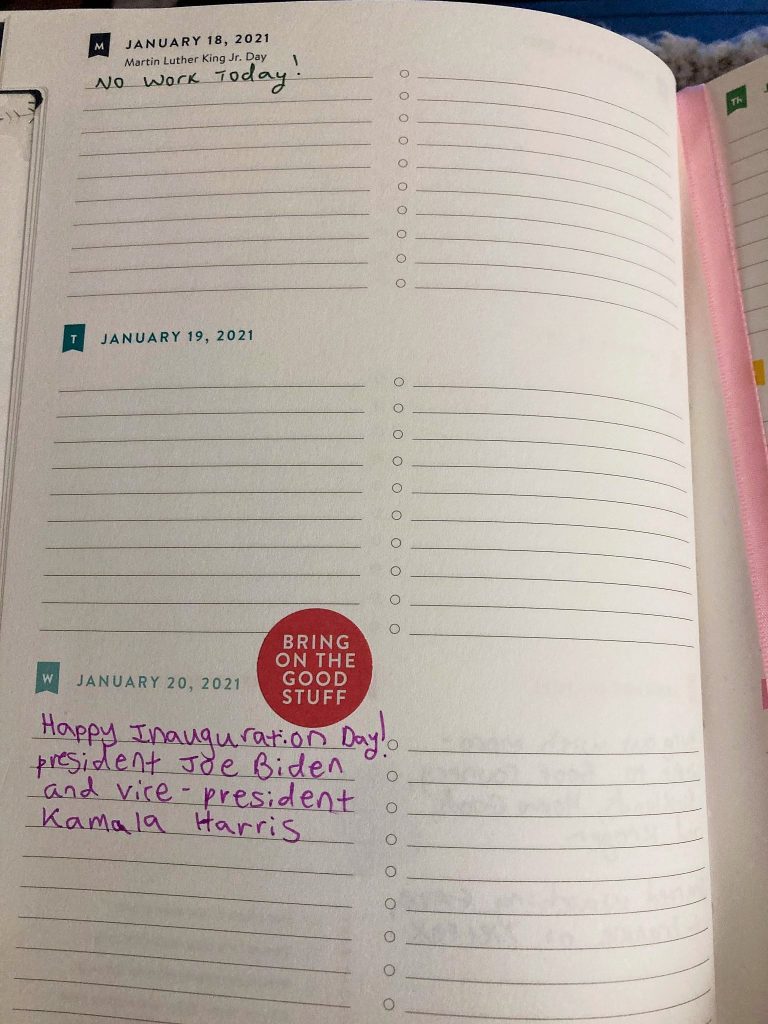 M
JANUARY 18, 2021
Martin Luther King Jr. Day
No Work Today!
T
JANUARY 19, 2021
BRING
ON THE
GOOD
STUFF
W
JANUARY 20, 2021
Happy Inauguration Day!
president Joe Biden
and vice-president
Kamala Harris
Th